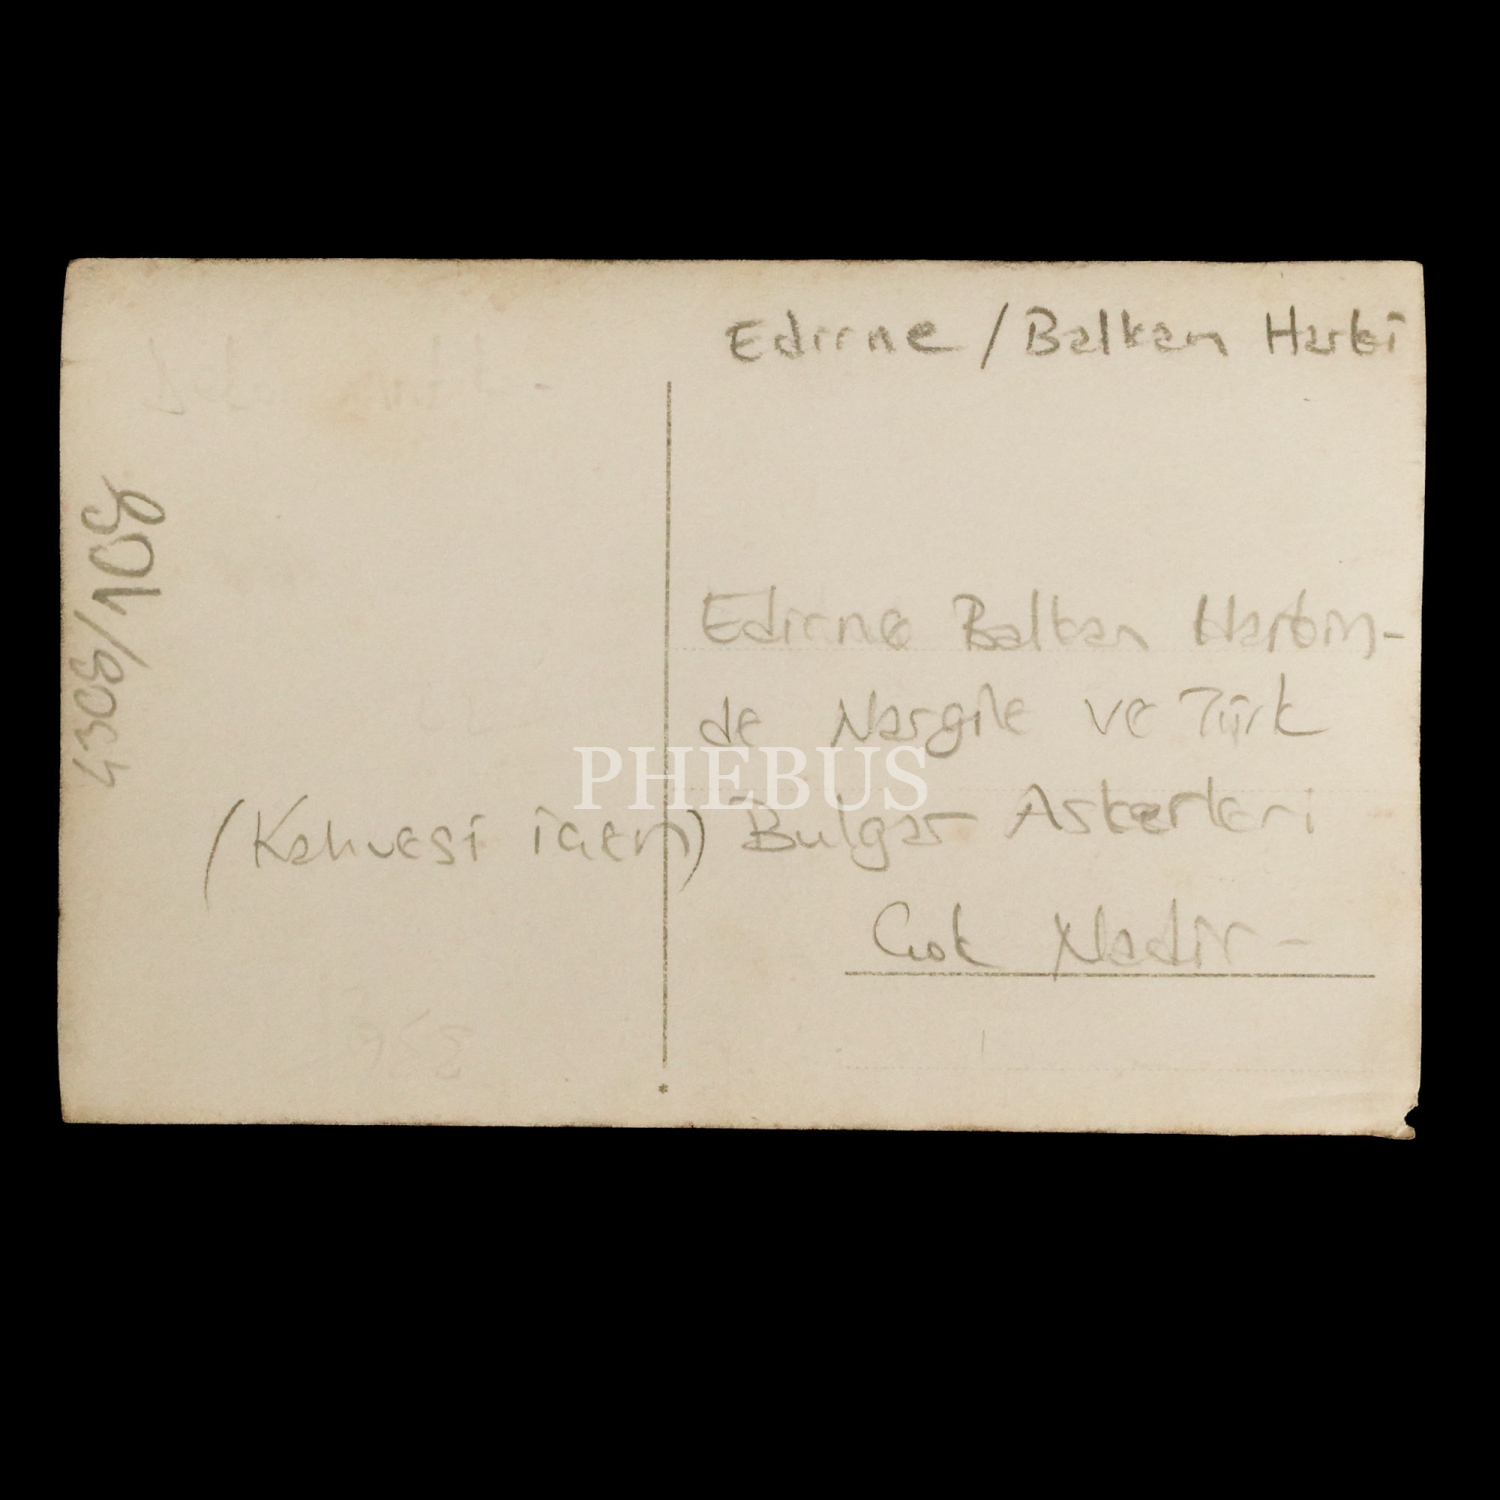 Edirne / Balkan Harbi
Edirne Balkan Harbin-
de Nargile ve Türk
(Kahvesi içen) Bulgar Askerleri
Çok Nadir -
4308/108
PHEBUS